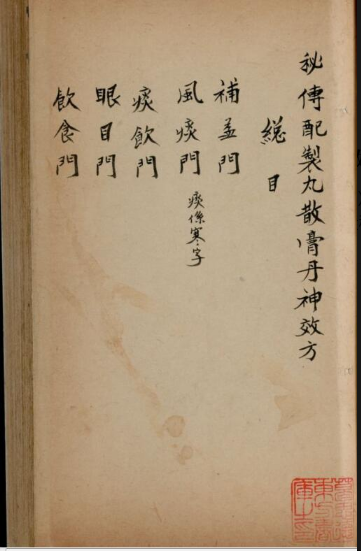 秘傳配製丸散膏丹神效方
總目
補益門
風痰門 痰係寒字
痰飲門
眼目門
飲食門